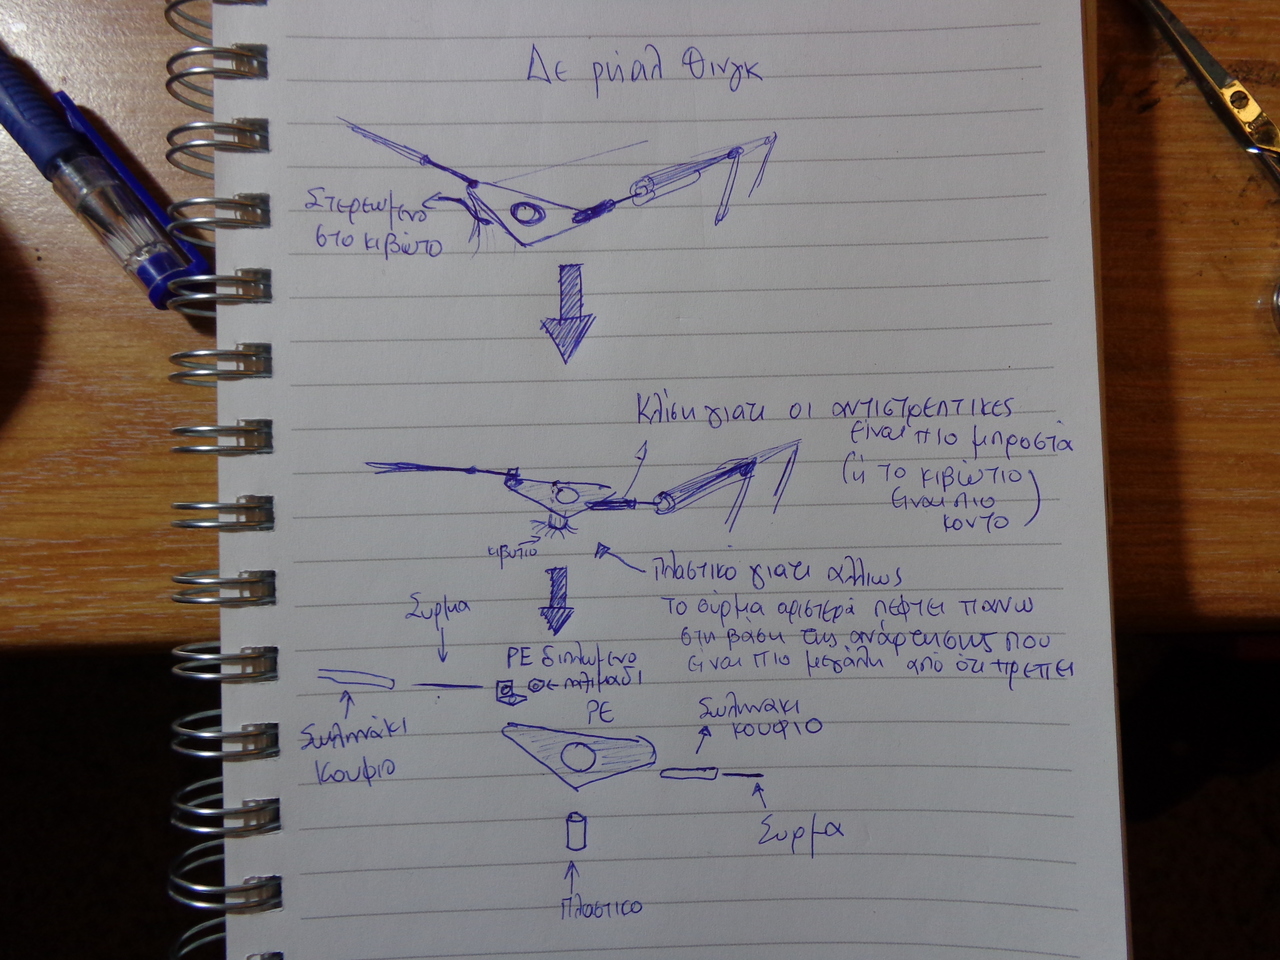 Δε ρηαλ θινγκ
Στερεωμενο
στο κιβώτο
Κλίση γιατι οι αντιστρεπτικες
είναι πιο μπροστά
(ή το κιβώτιο
ειναι πιο
κοντο)
κιβωτιο
Πλαστικό γιατι αλλιως
το σύρμα αριστερά πεφτει πανω
στη βάση της ανάρτησης που
είναι πιο μεγάλη από ότι πρεπει
Συρμα
PE διπλωμενο
παξιμαδι
PE
Σωληνάκι
κουφιο
Σωληνάκι
κουφιο
Συρμα
Πλαστικο